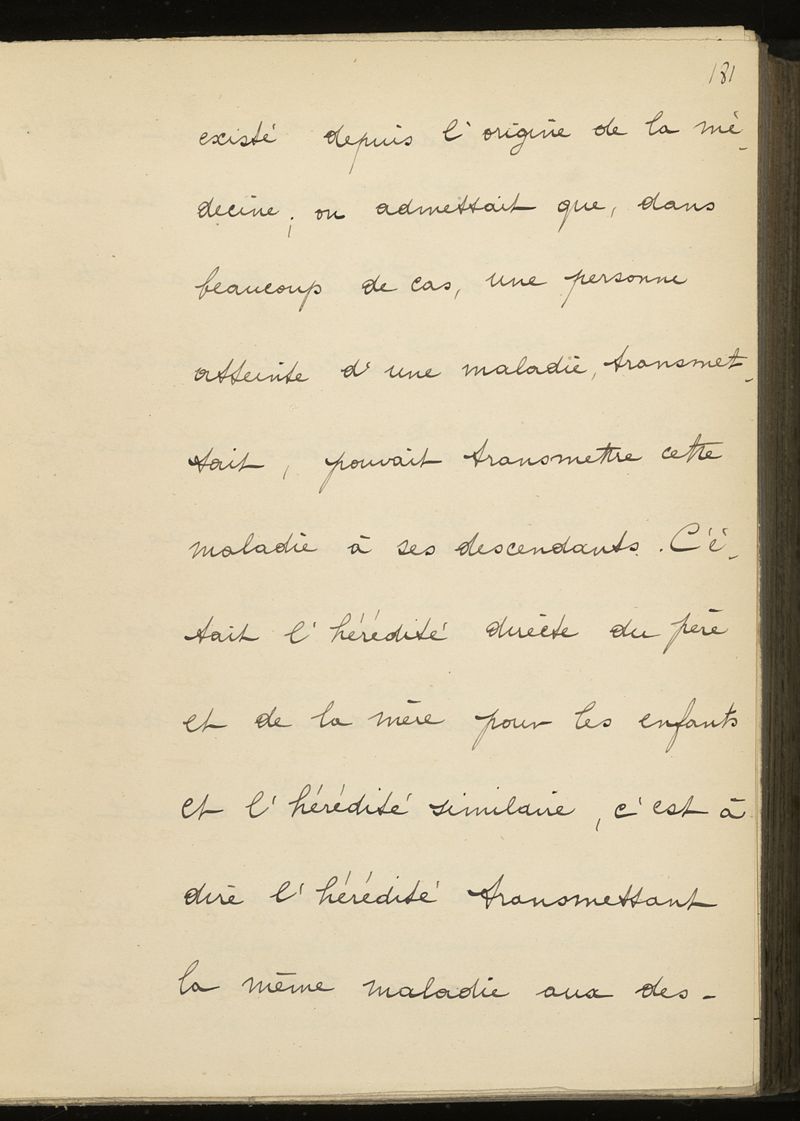 181
existé depuis l'origine de la mé-
decine ; on admettait que, dans
beaucoup de cas, une personne
atteinte d'une maladie, transmet-
tait, pouvait transmettre cette
maladie à ses descendants. C'é-
tait l'hérédité directe du père
et de la mère pour les enfants
et l'hérédité similaire, c'est à
dire l'hérédité transmettant
la même maladie aux des-